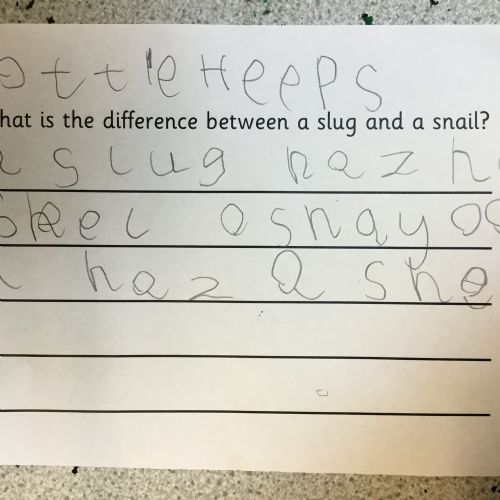 ottle Heeps
hat is the difference between a slug and a snail?
a slug haz h
skel a snay
haz a she